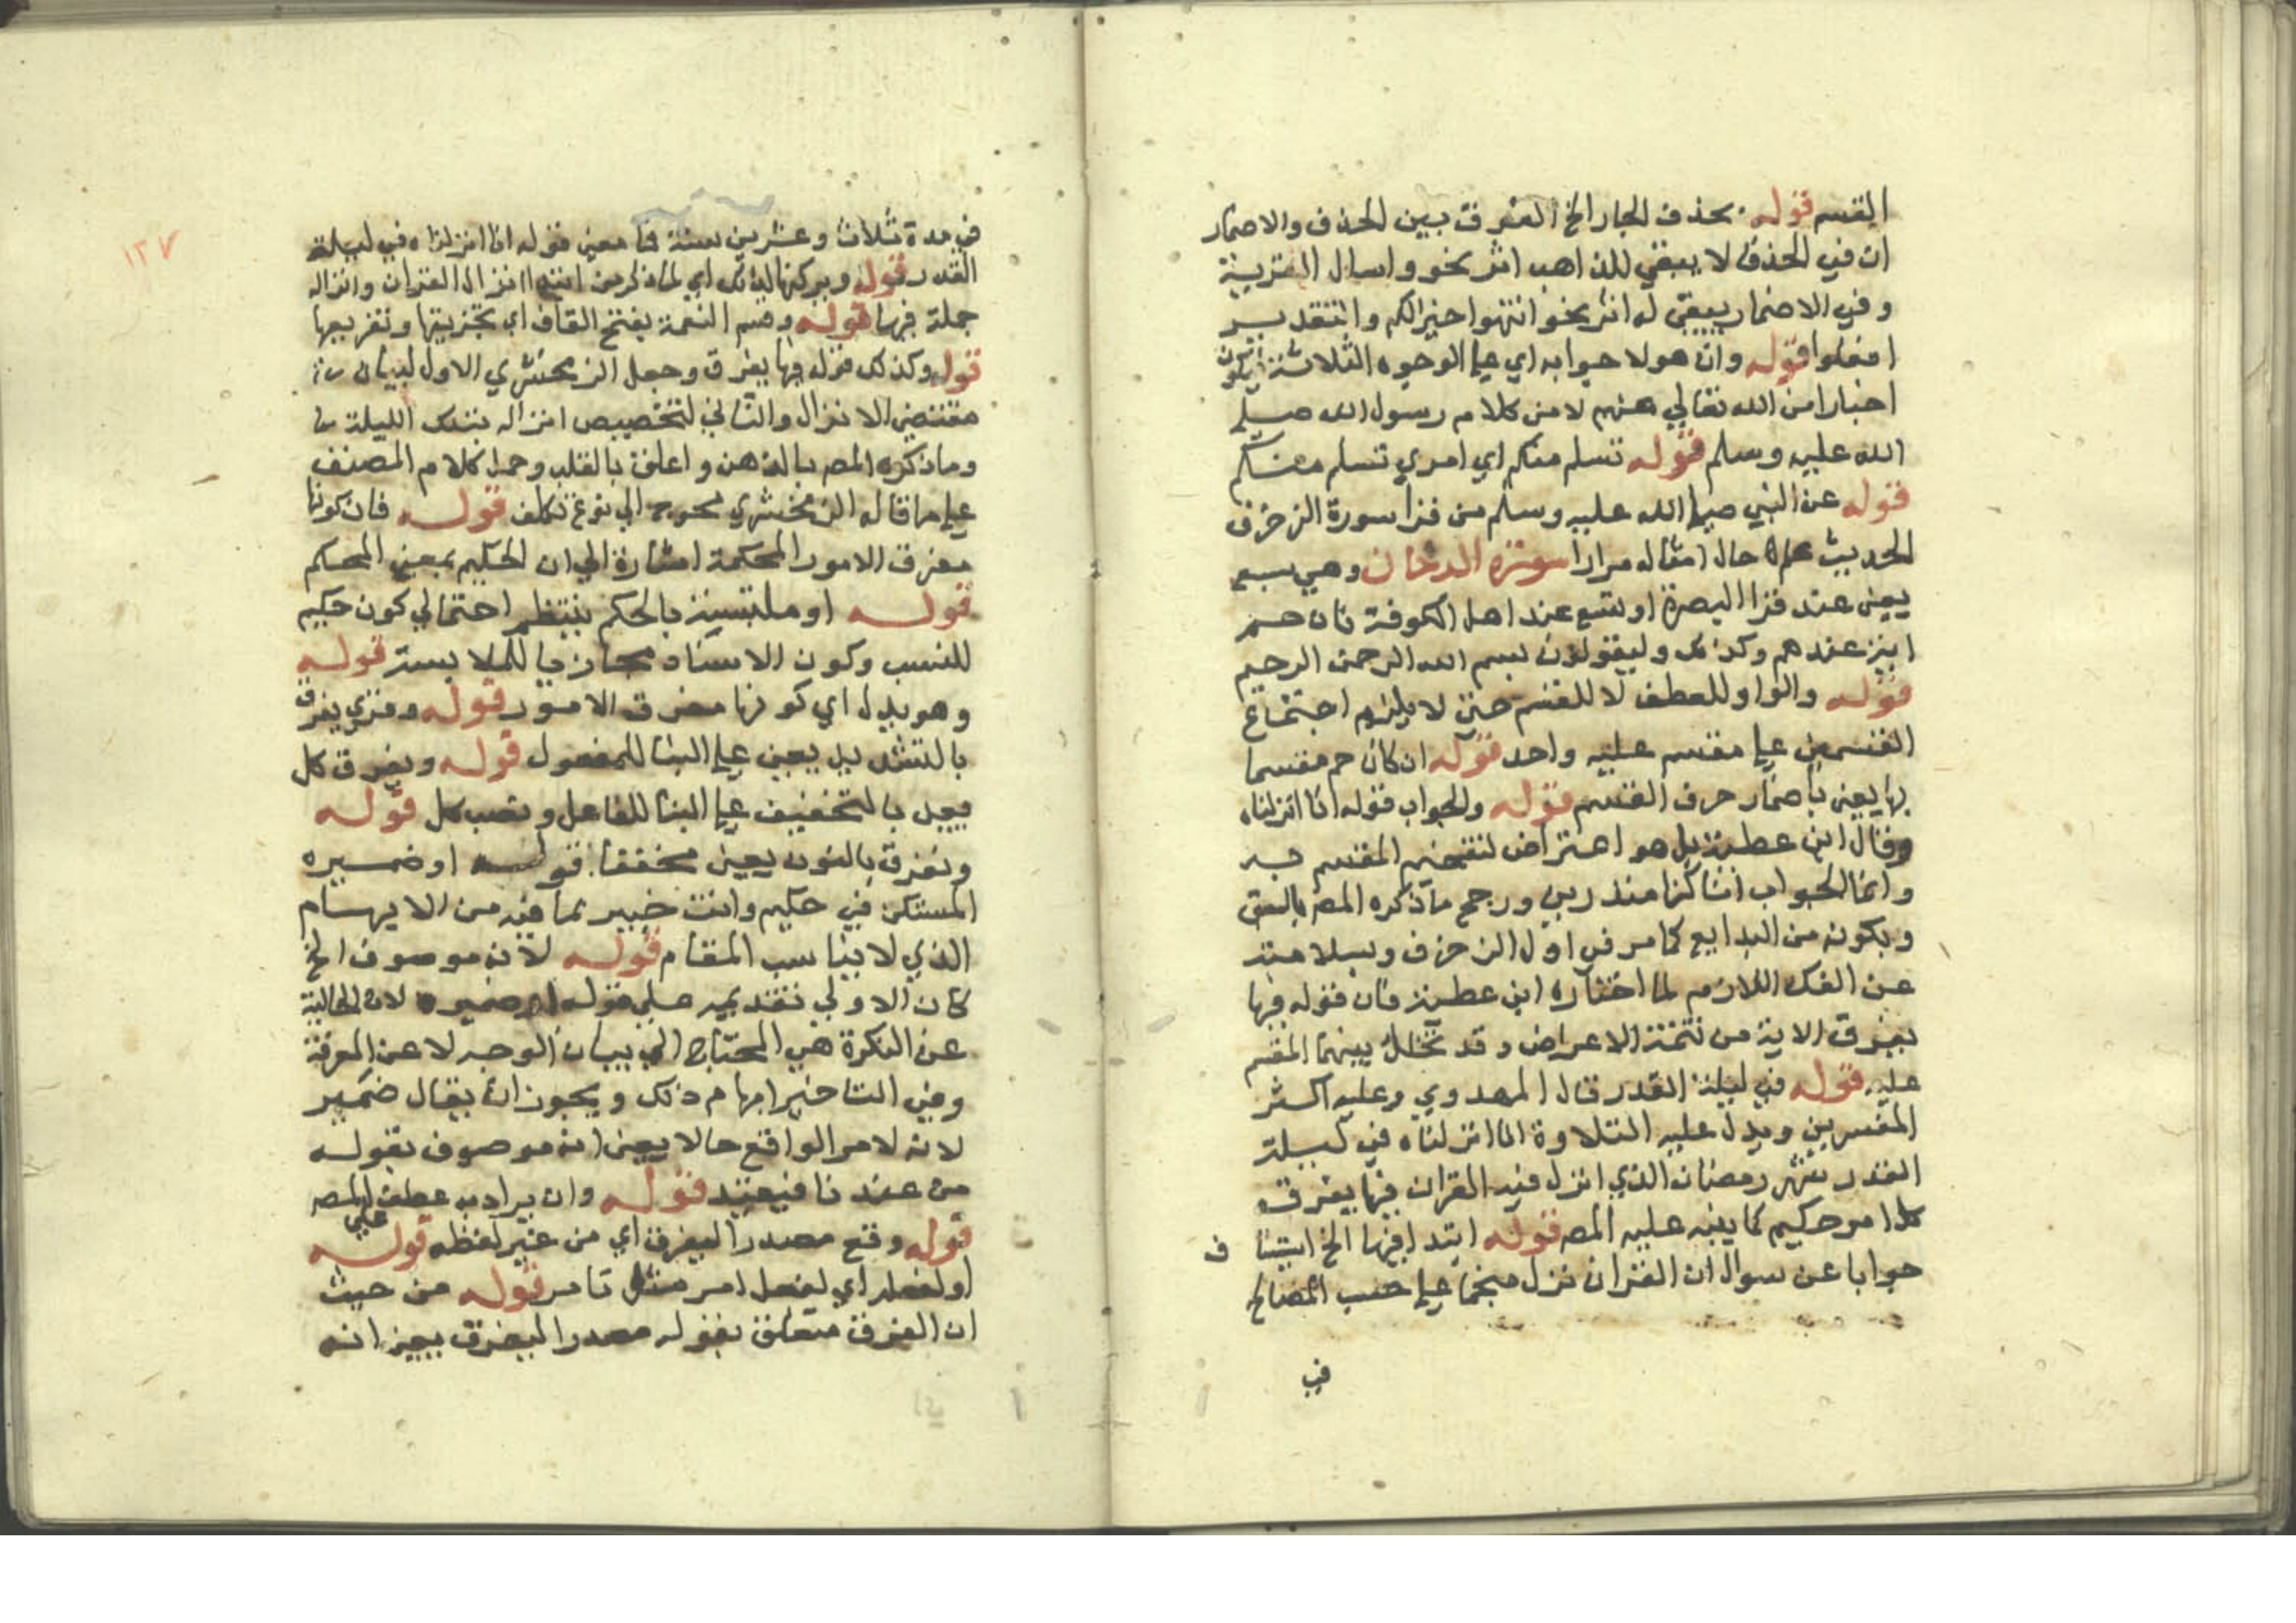 القسم قوله بحذف الجار الخ الفرق بين الحذف والاضمار
ان في الحذف لا يبقي للذاهب اثر نحو واسال القرينة
وفي الاضمار يبقى له اثر نحو انتهوا خيرا لكم والتقدير
افعلوا قوله وان هولا جوابه اي علي الوجوه الثلاثة
اخبارا من الله تعالي عنهم لا من كلام رسول الله صلي
الله عليه وسلم قوله تسلم منكم اي امري تسلم منكم
قوله عن النبي صلي الله عليه وسلم من قرا سورة الزخرف
الحديث علم حال امثاله مرارا سورة الدخان وهي سبع
يعني عند قرا البصرة او تسع عند اهل الكوفة فان حم
اية عندهم وكذلك وليقولون بسم الله الرحمن الرحيم
قوله والواو للعطف لا للقسم حتى لا يلزم اجتماع
القسمين علي مقسم عليه واحد قوله ان كان حم مقسما
بها يعني باضمار حرف القسم قوله والجواب قوله انا انزلناه
وقال ابن عطية بل هو اعتراض لتفخيم المقسم به
وانما الجواب انا كنا منذرين ورجح ما ذكره المص بالسبق
وبكونه من البدايع كما مر في اول الزخرف وبسلامته
عن الفك اللازم لما اختاره ابن عطية فان قوله فيها
يفرق الاية من تتمة الاعراض وقد تخلل بينهما المقسم
عليه قوله في ليلة القدر قال المهدوي وعليه اكثر
المفسرين ويدل عليه التلاوة انا انزلناه في ليلة
القدر شهر رمضان الذي انزل فيه القران فيها يفرق
كل امر حكيم كما ينبه عليه المص قوله ابتدا فيها الخ
جوابا عن سوال ان القران نزل منجما علي حسب المصالح
في
١٢٧
في مدة ثلاث وعشرين سنة فما معني قوله انا انزلناه في ليلة
القدر قوله وبركتها لذلك اي لما ذكر من ابتدا انزال القران وانزاله
جملة فيها قوله وقسم النعمة بفتح القاف اي تجزيتها وتفريعها
قوله وكذلك قوله فيها يفرق وجعل الزمخشري الاول لبيان
مقتضي الانزال والثاني لتخصيص انزاله بتلك الليلة
وما ذكره المص بالذهن واعلق بالقلب وحمل كلام المصنف
علي ما قاله الزمخشري محوج الي نوع تكلف قوله فان كونها
مفرق الامور المحكمة اشارة الي ان الحكيم بمعني المحكم
قوله او ملتبسة بالحكم ينتظم احتمالي كون حكيم
للنسب وكون الاسناد مجازيا للملابسة قوله
وهو يدل اي كونها مفرق الامور قوله وقري يفرق
بالتشديد يعني علي البنا للمفعول قوله ويفرق كل
يعني بالتخفيف علي البنا للفاعل ونصب كل قوله
ونفرق بالنون يعني مخففا قوله او ضميره
المستكن في حكيم وانت خبير بما فيه من الايهام
الذي لا يناسب المقام قوله لانه موصوف الخ
كان الاولي تقديمه علي قوله او ضميره لان الحالية
عن النكرة هي المحتاج الي بيان الوجه لا عن المعرفة
وفي التاخير ابهام ذلك ويجوز ان يقال ضمير
لانه لامر الواقع حالا يعني انه موصوف بقوله
من عندنا فيفيد قوله وان يراد به عطف المص
علي
قوله وقع مصدرا ليفرق اي من غير لفظه قوله
او لفعله اي لفعل امر مثل تامر قوله من حيث
ان الفرق متعلق بقوله مصدرا ليفرق يعني انه